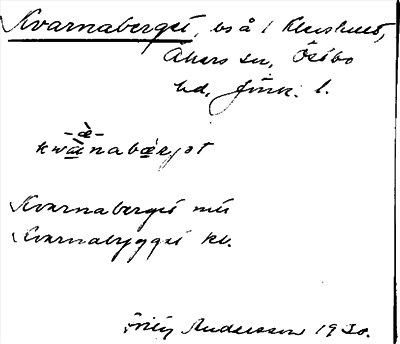 Kvarnaberget, bs å 1 Klershult,
Åkers sn, Östbo
hd, Jönk. l.
-æ̀-
kwæ̀nabærjət
Kvarnaberget nu
Kvarnabygget kv.
Andersson 1930.